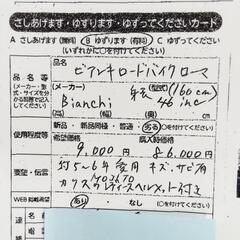 さしあげます・ゆずります・ゆずってくださいカード
A さしあげます(無料) B ゆずります(有料) C ゆずってください
(いずれかに○を付けてください)
品名等
(メーカー・型式・サイズを分かる範囲で記入してください)
ビアンキロードバイク ローマ
(メーカー) (型式) (160cm)
Bianchi 46 inc
使用程度等
新品・新品同様・普通・劣る
希望価格 購入時価格
9,000円 86,000円
要望・伝言
約5~6年愛用 キズ、サビ有
カクスウレディースヘルメット付き
WEB掲載希望
あり・なし